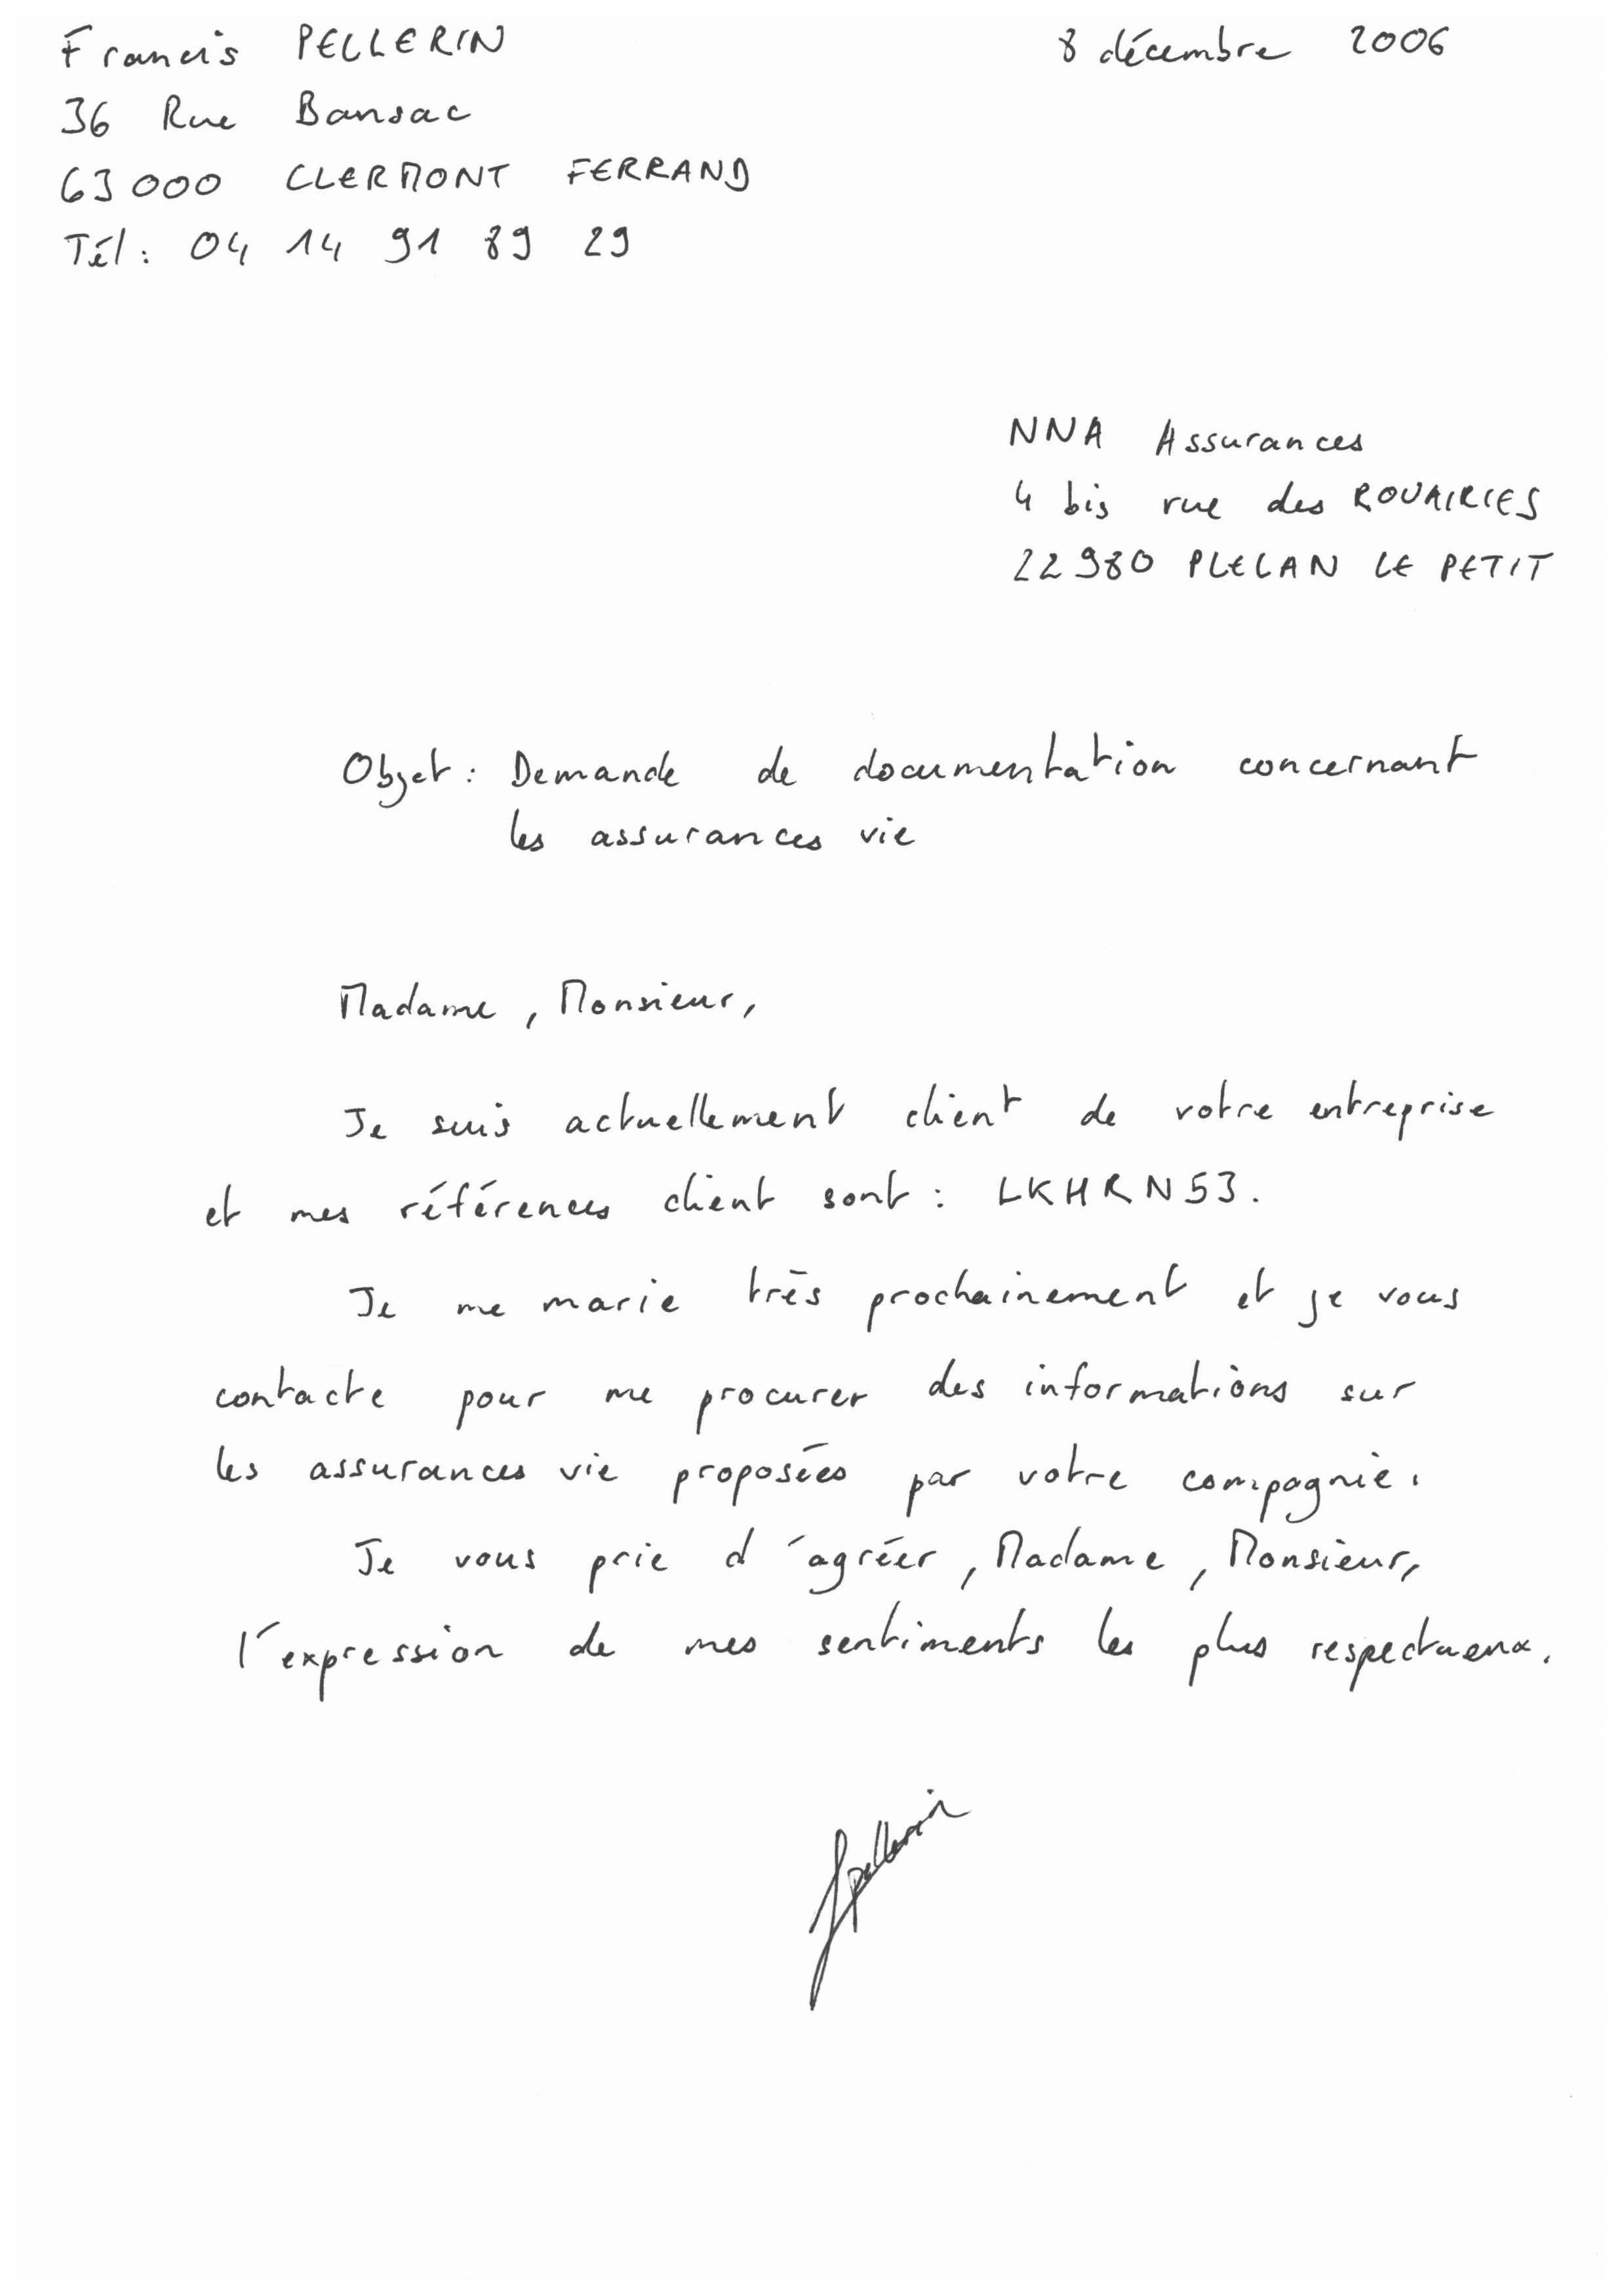 Francis PELLERIN
8 décembre 2006
36 Rue Bansac
63000 CLERMONT FERRAND
Tél : 04 14 91 89 29
NNA Assurances
4 bis rue des ROUAIRIES
22980 PLELAN LE PETIT
Objet : Demande de documentation concernant
les assurances vie
Madame, Monsieur,
Je suis actuellement client de votre entreprise
et mes références client sont : LKHRN53.
Je me marie très prochainement et je vous
contacte pour me procurer des informations sur
les assurances vie proposées par votre compagnie.
Je vous prie d'agréer, Madame, Monsieur,
l'expression de mes sentiments les plus respectueux.
fpellerin